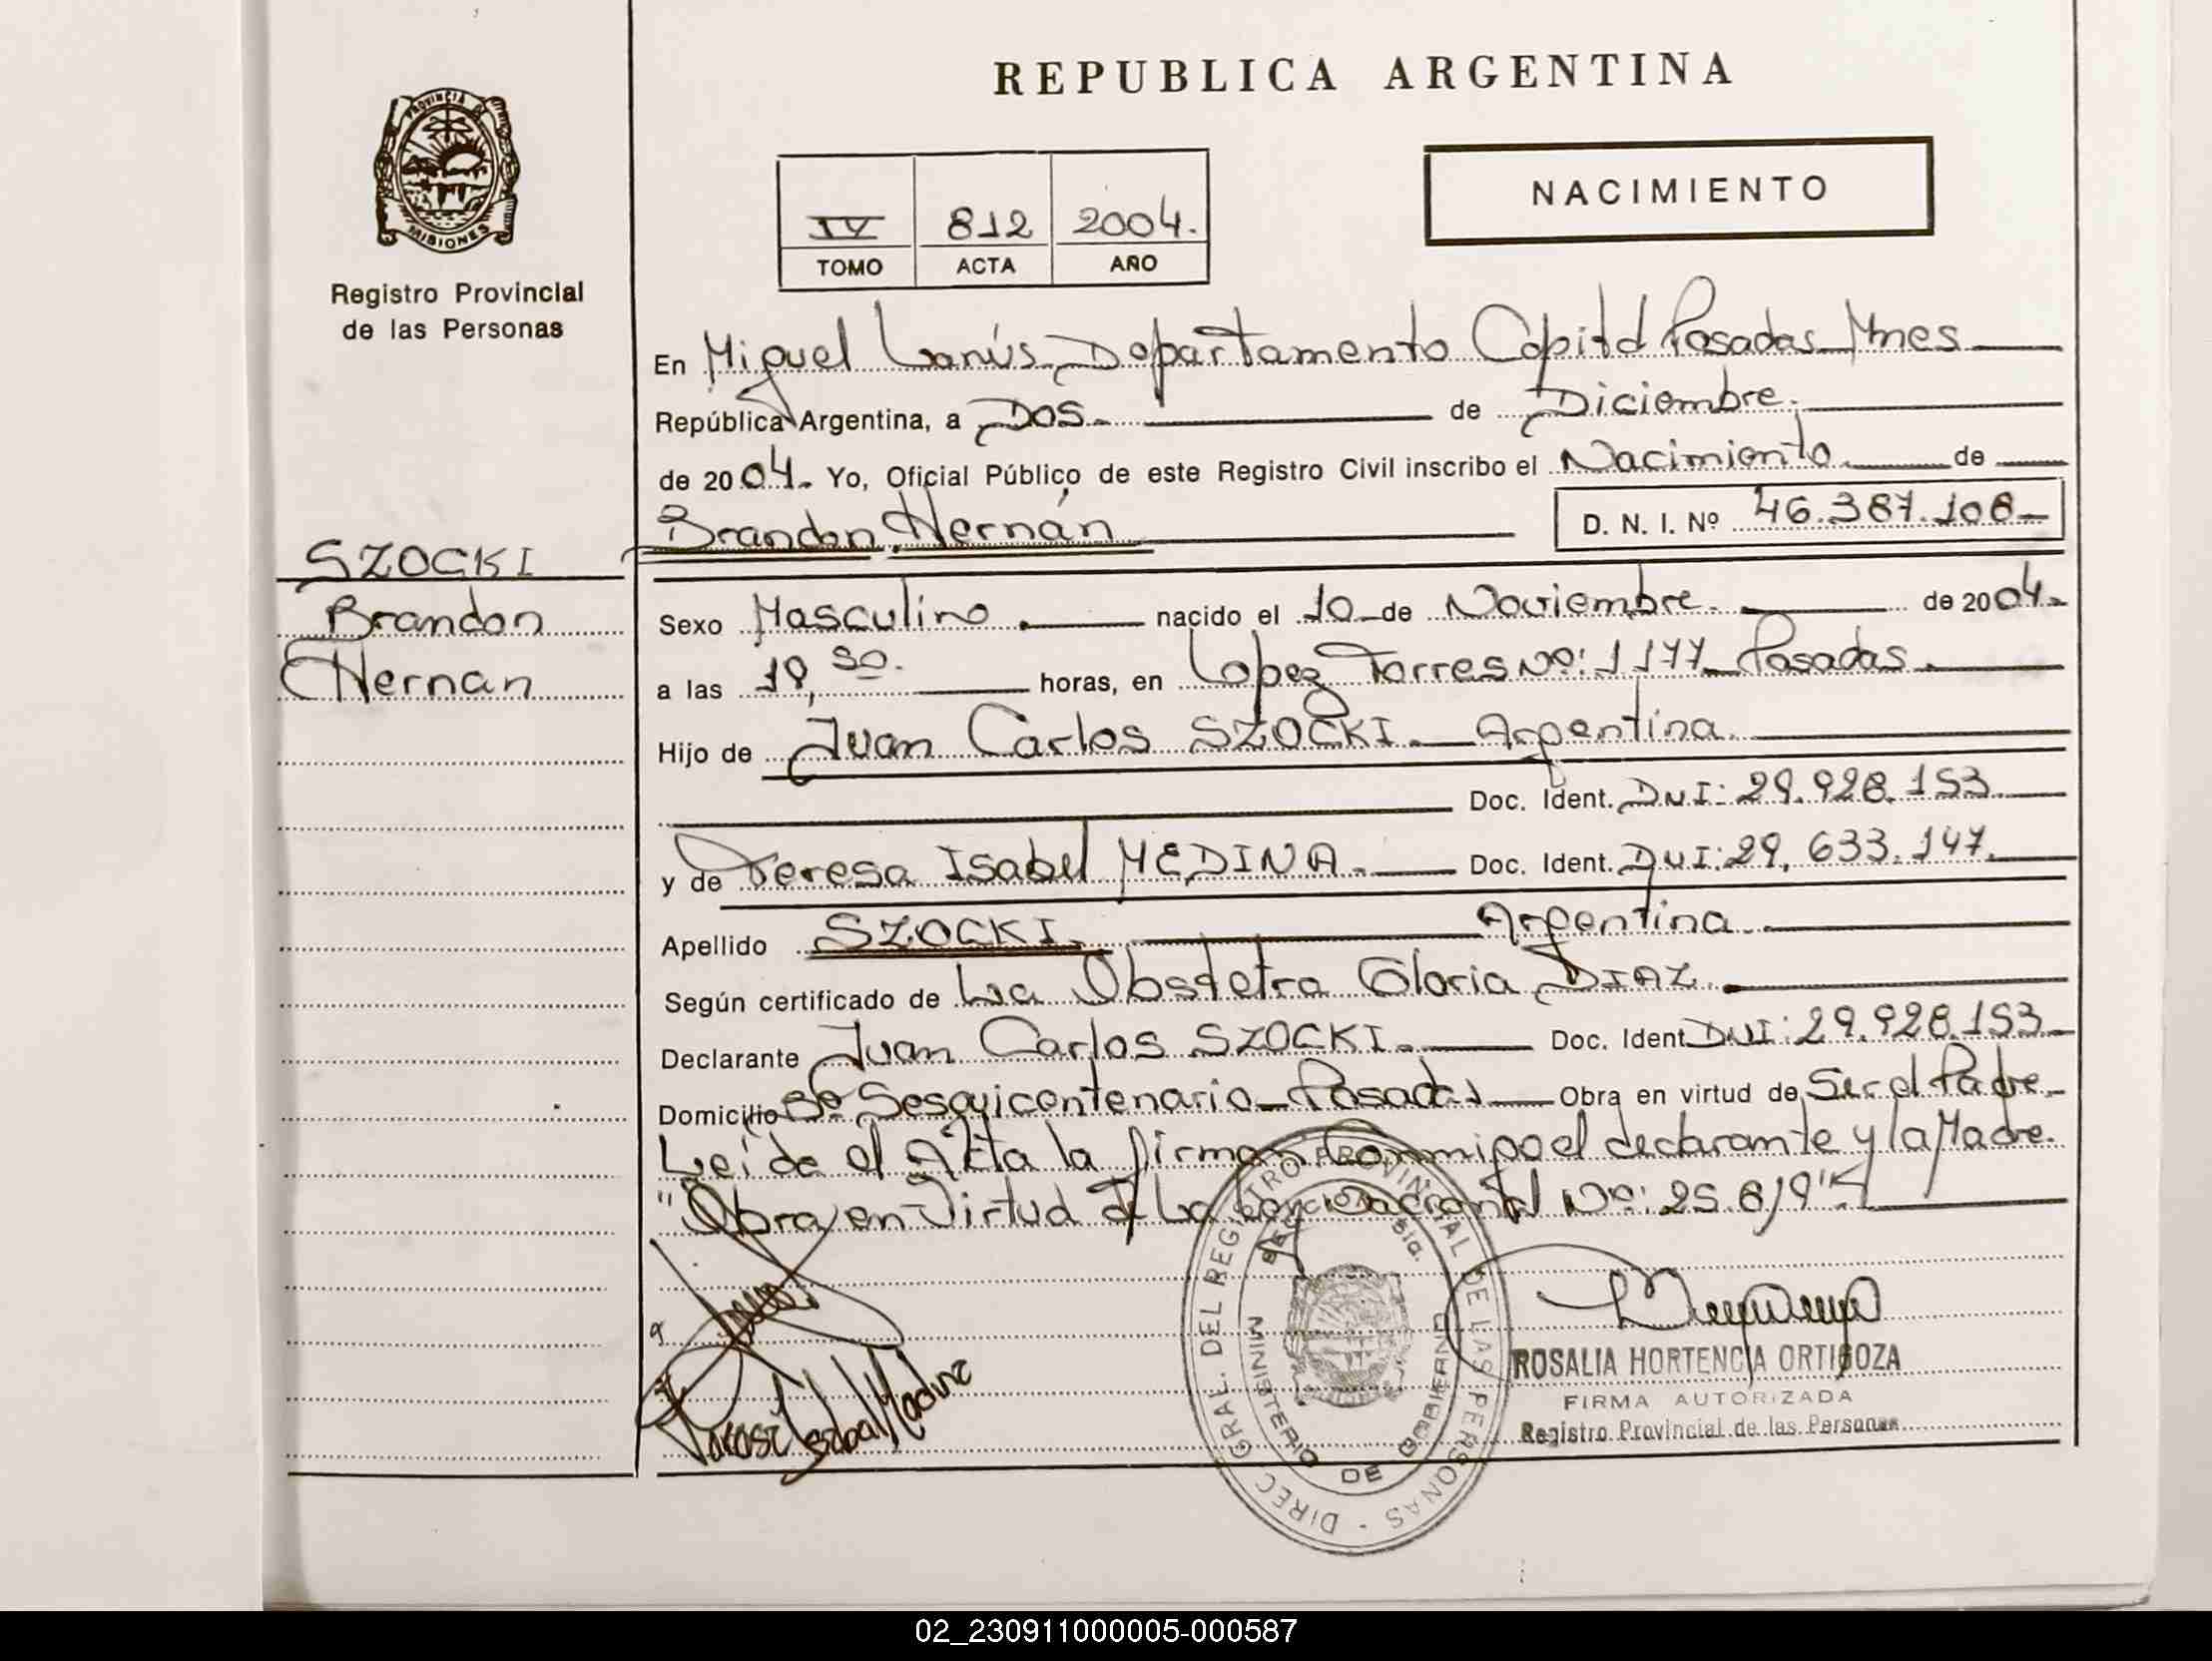 REPUBLICA ARGENTINA
PROVINCIA DE
MISIONES
Registro Provincial
de las Personas
IV 812 2004.
TOMO ACTA AÑO
NACIMIENTO
En Miguel Lanús Departamento Capital Posadas Mnes
República Argentina, a Dos. de Diciembre.
de 2004. Yo, Oficial Público de este Registro Civil inscribo el Nacimiento de
Brandon Hernán D. N. I. Nº 46.387.108
SZOCKI
Brandon
Hernan
Sexo Masculino. nacido el 10 de Noviembre. de 2004.
a las horas, en Lopez Torres Nº: 1177 Posadas.
Hijo de Juan Carlos SZOCKI. Argentina.
Doc. Ident. DNI: 29.928.153
y de Teresa Isabel MEDINA. Doc. Ident. DNI: 29.633.147.
Apellido SZOCKI. Argentina.
Según certificado de La Obstetra Gloria DIAZ.
Declarante Juan Carlos SZOCKI. Doc. Ident. DNI: 29.928.153
Domicilio Bº Sesquicentenario Posadas Obra en virtud de Ser el Padre.
Leída el Acta la firman Conmigo el declarante y la Madre.
"Obra en Virtud de La Ley Nacional Nº: 25.819"
Teresa Isabel Medina
DIREC. GRAL. DEL REGISTRO PROVINCIAL DE LAS PERSONAS
MINISTERIO DE GOBIERNO
ROSALIA HORTENCIA ORTIGOZA
FIRMA AUTORIZADA
Registro Provincial de las Personas
02_230911000005-000587